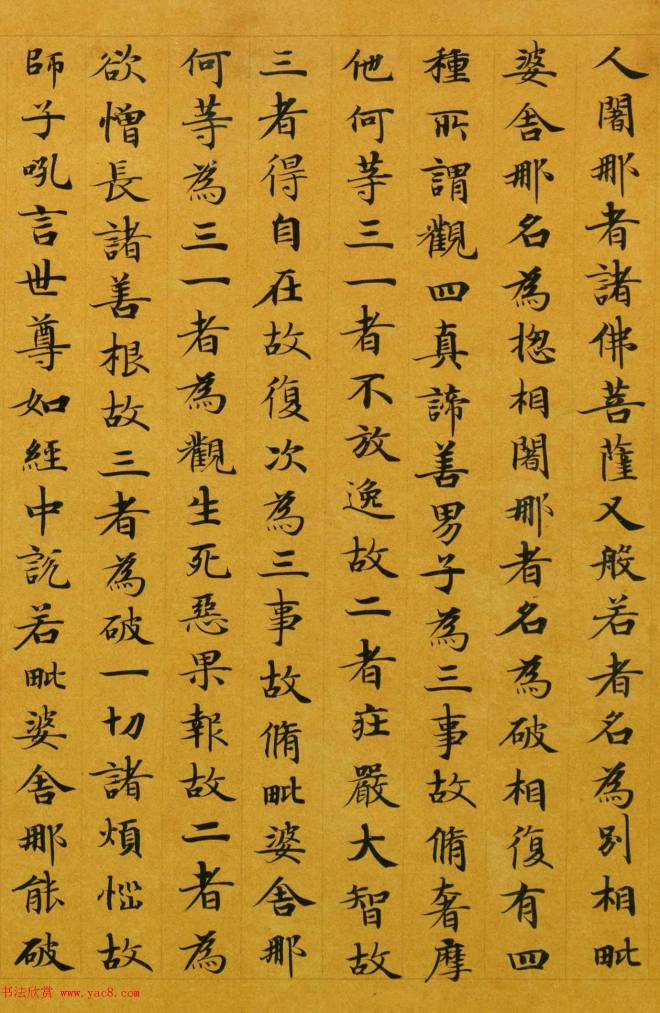 人闍那者諸佛菩薩又般若者名為別相毗
婆舍那名為揔相闍那者名為破相復有四
種所謂觀四真諦善男子為三事故脩奢摩
他何等三一者不放逸故二者庄嚴大智故
三者得自在故復次為三事故脩毗婆舍那
何等為三一者為觀生死惡果報故二者為
欲憎長諸善根故三者為破一切諸煩惱故
師子吼言世尊如經中說若毗婆舍那能破
书法欣赏 www.yac8.com